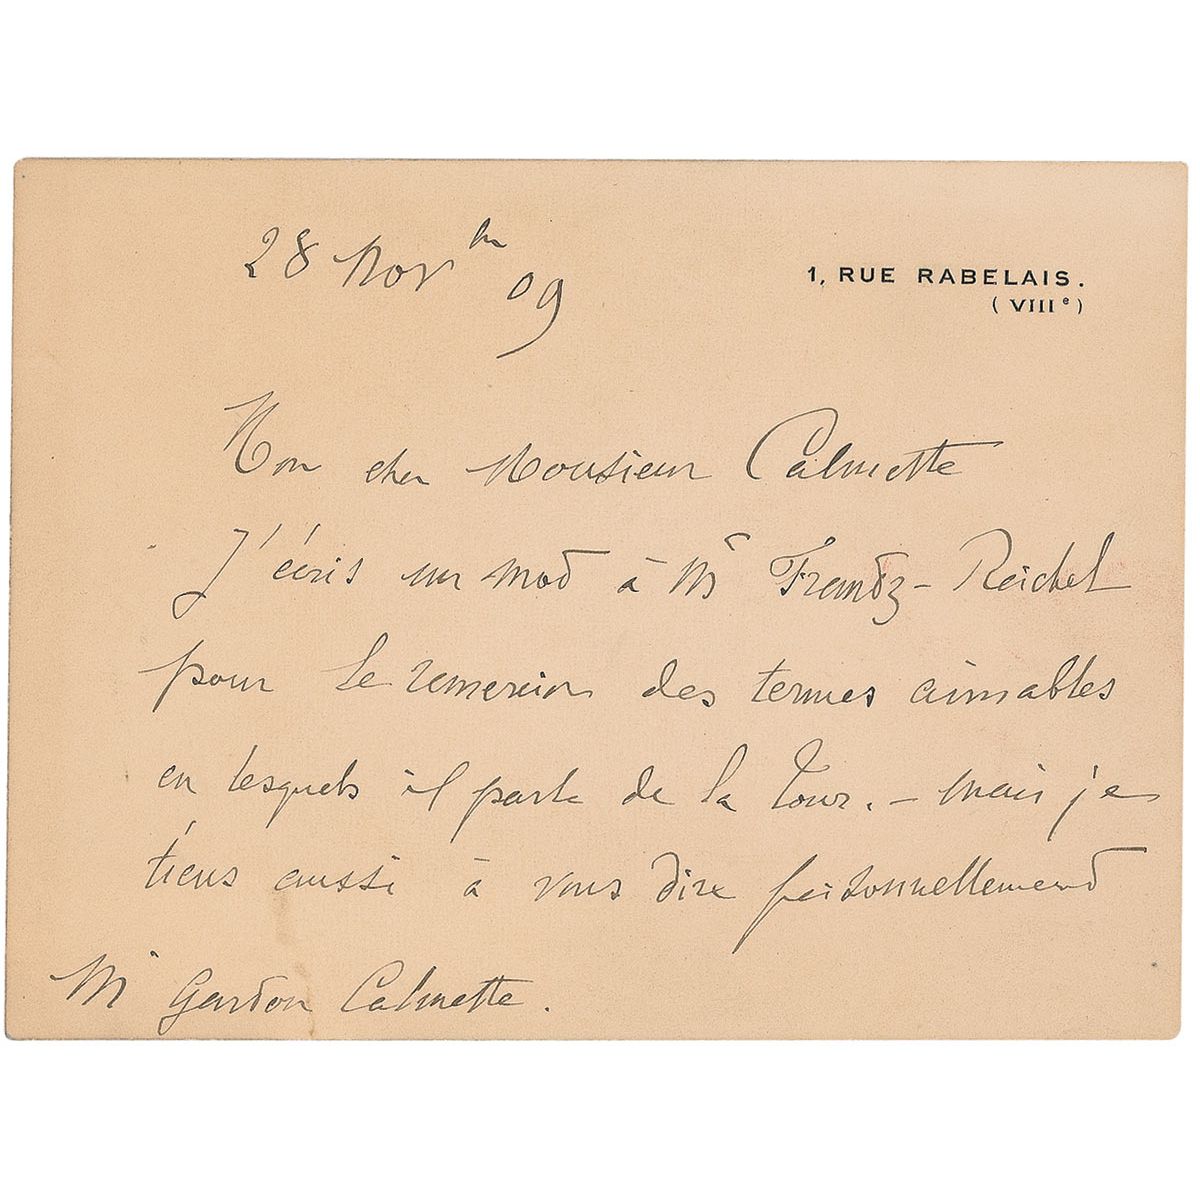 28 Nov bre 09
1, RUE RABELAIS.
(VIIIe)
Mon cher Monsieur Calmette
J'écris un mot à Mr Frantz-Reichel
pour le remercier des termes aimables
en lesquels il parle de la Tour. - Mais je
tiens aussi à vous dire personnellement
Mr Gaston Calmette.